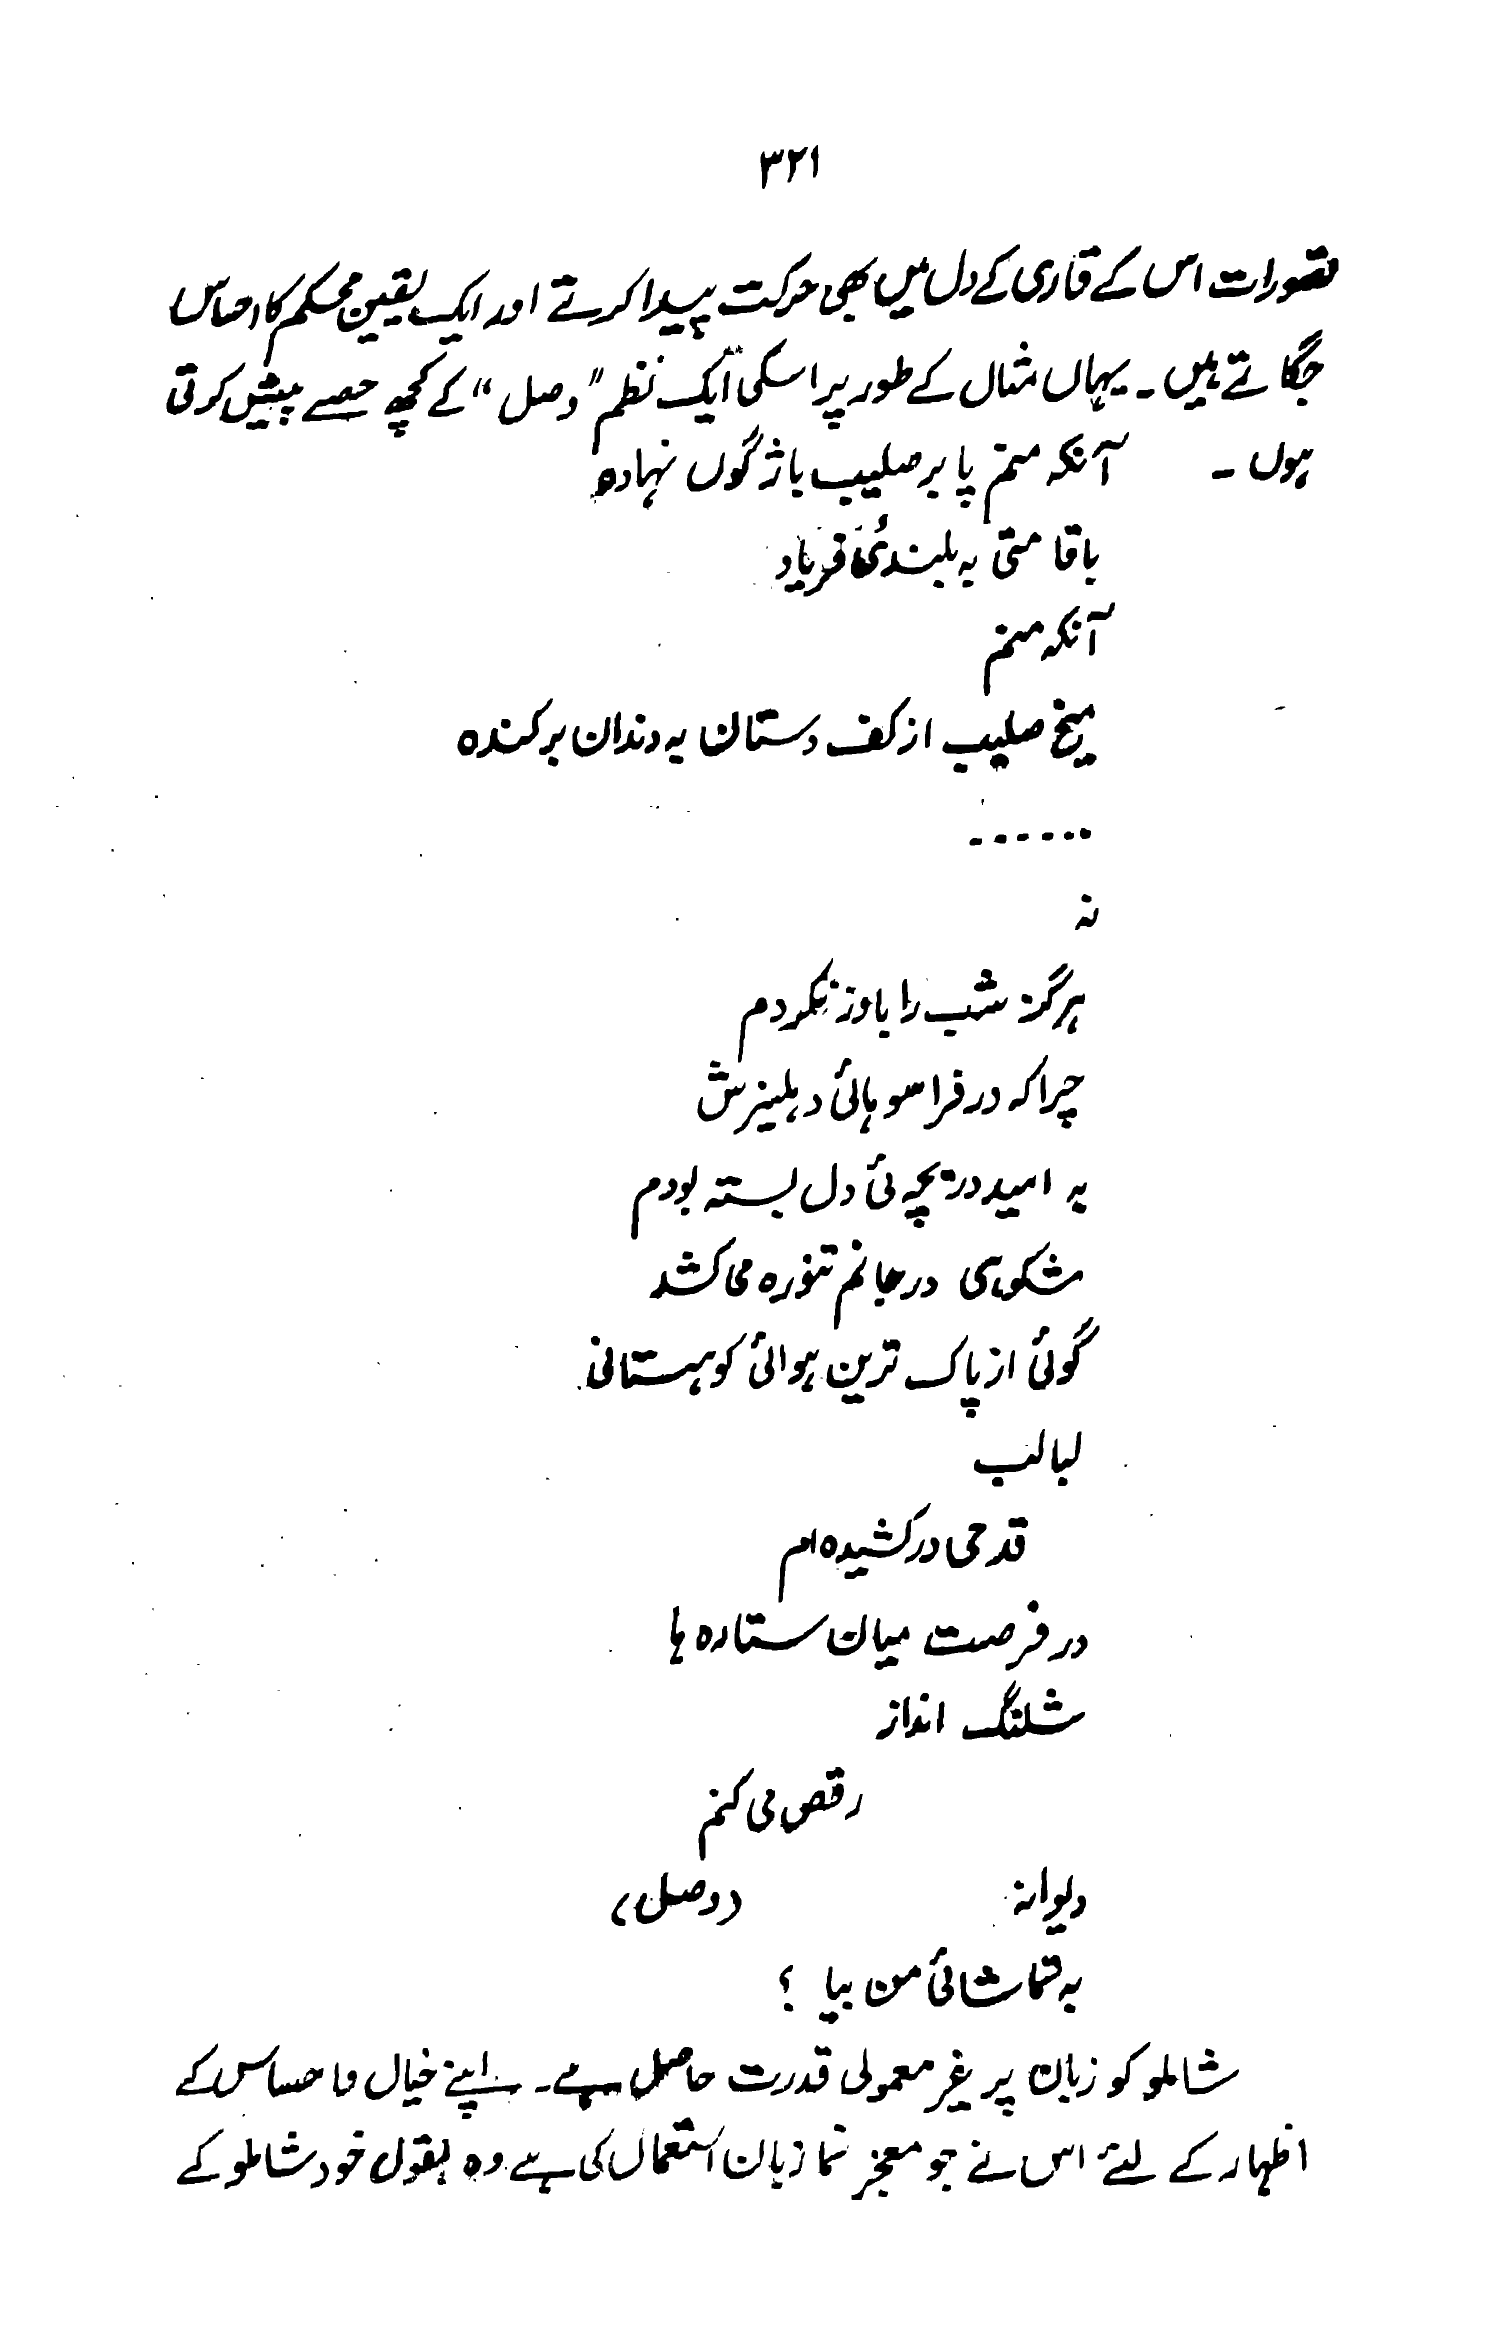 ۳۲۱
تصورات اس کے قاری کے دل میں بھی حرکت پیدا کرتے اور ایک یقین محکم کا احساس
جگاتے ہیں۔ یہاں مثال کے طور پر اسکی ایک نظم "وصل" کے کچھ حصے پیش کرتی
ہوں۔ آنکہ منم پا بر صلیب باژگوں نہادہ
با قامتی بہ بلندئ فریاد
آنکہ منم
میخ صلیب از کف دستان بہ دندان برکندہ
......
نہ
ہرگز شب را باور نکردم
چرا کہ در فراسوہائی دہلیزش
بہ امید دریچہ ئی دل بستہ بودم
شکوہی در جانم تنورہ می کشد
گوئی از پاک ترین ہوائی کوہستانی
لبالب
قدحی درکشیدہ ام
در فرصت میان ستارہ ہا
شلنگ انداز
رقص می کنم
دیوانہ (وصل)
بہ تماشائی من بیا ؟
شاملو کو زبان پر غیر معمولی قدرت حاصل ہے۔ اپنے خیال و احساس کے
اظہار کے لئے اس نے جو معجز نما زبان استعمال کی ہے وہ بقول خود شاملو کے